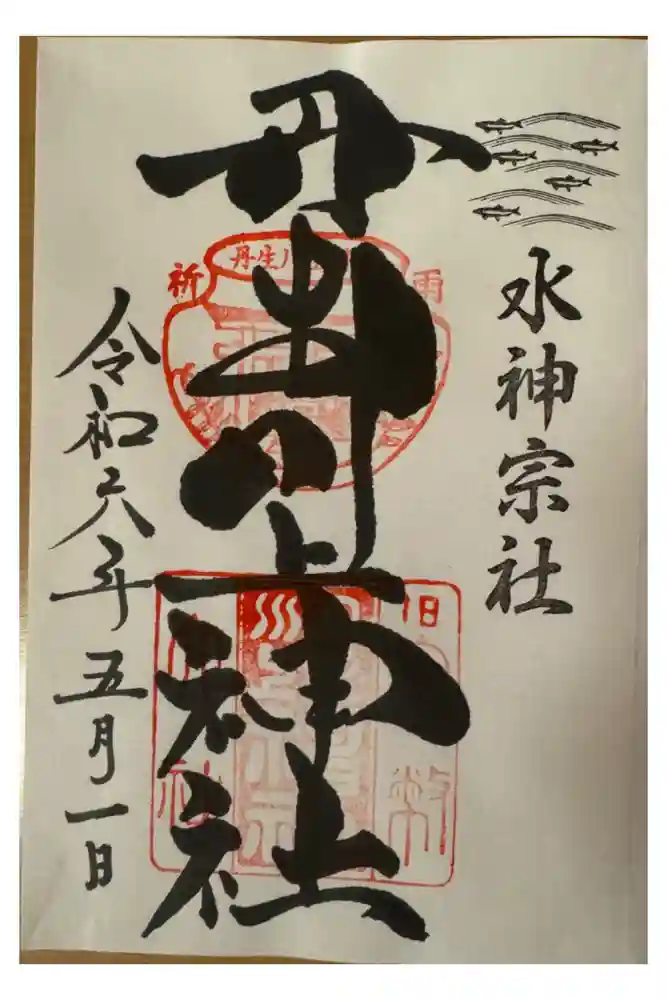 水神宗社
丹生川上神社
令和六年五月一日
丹生川
祈
雨
旧
幣
社